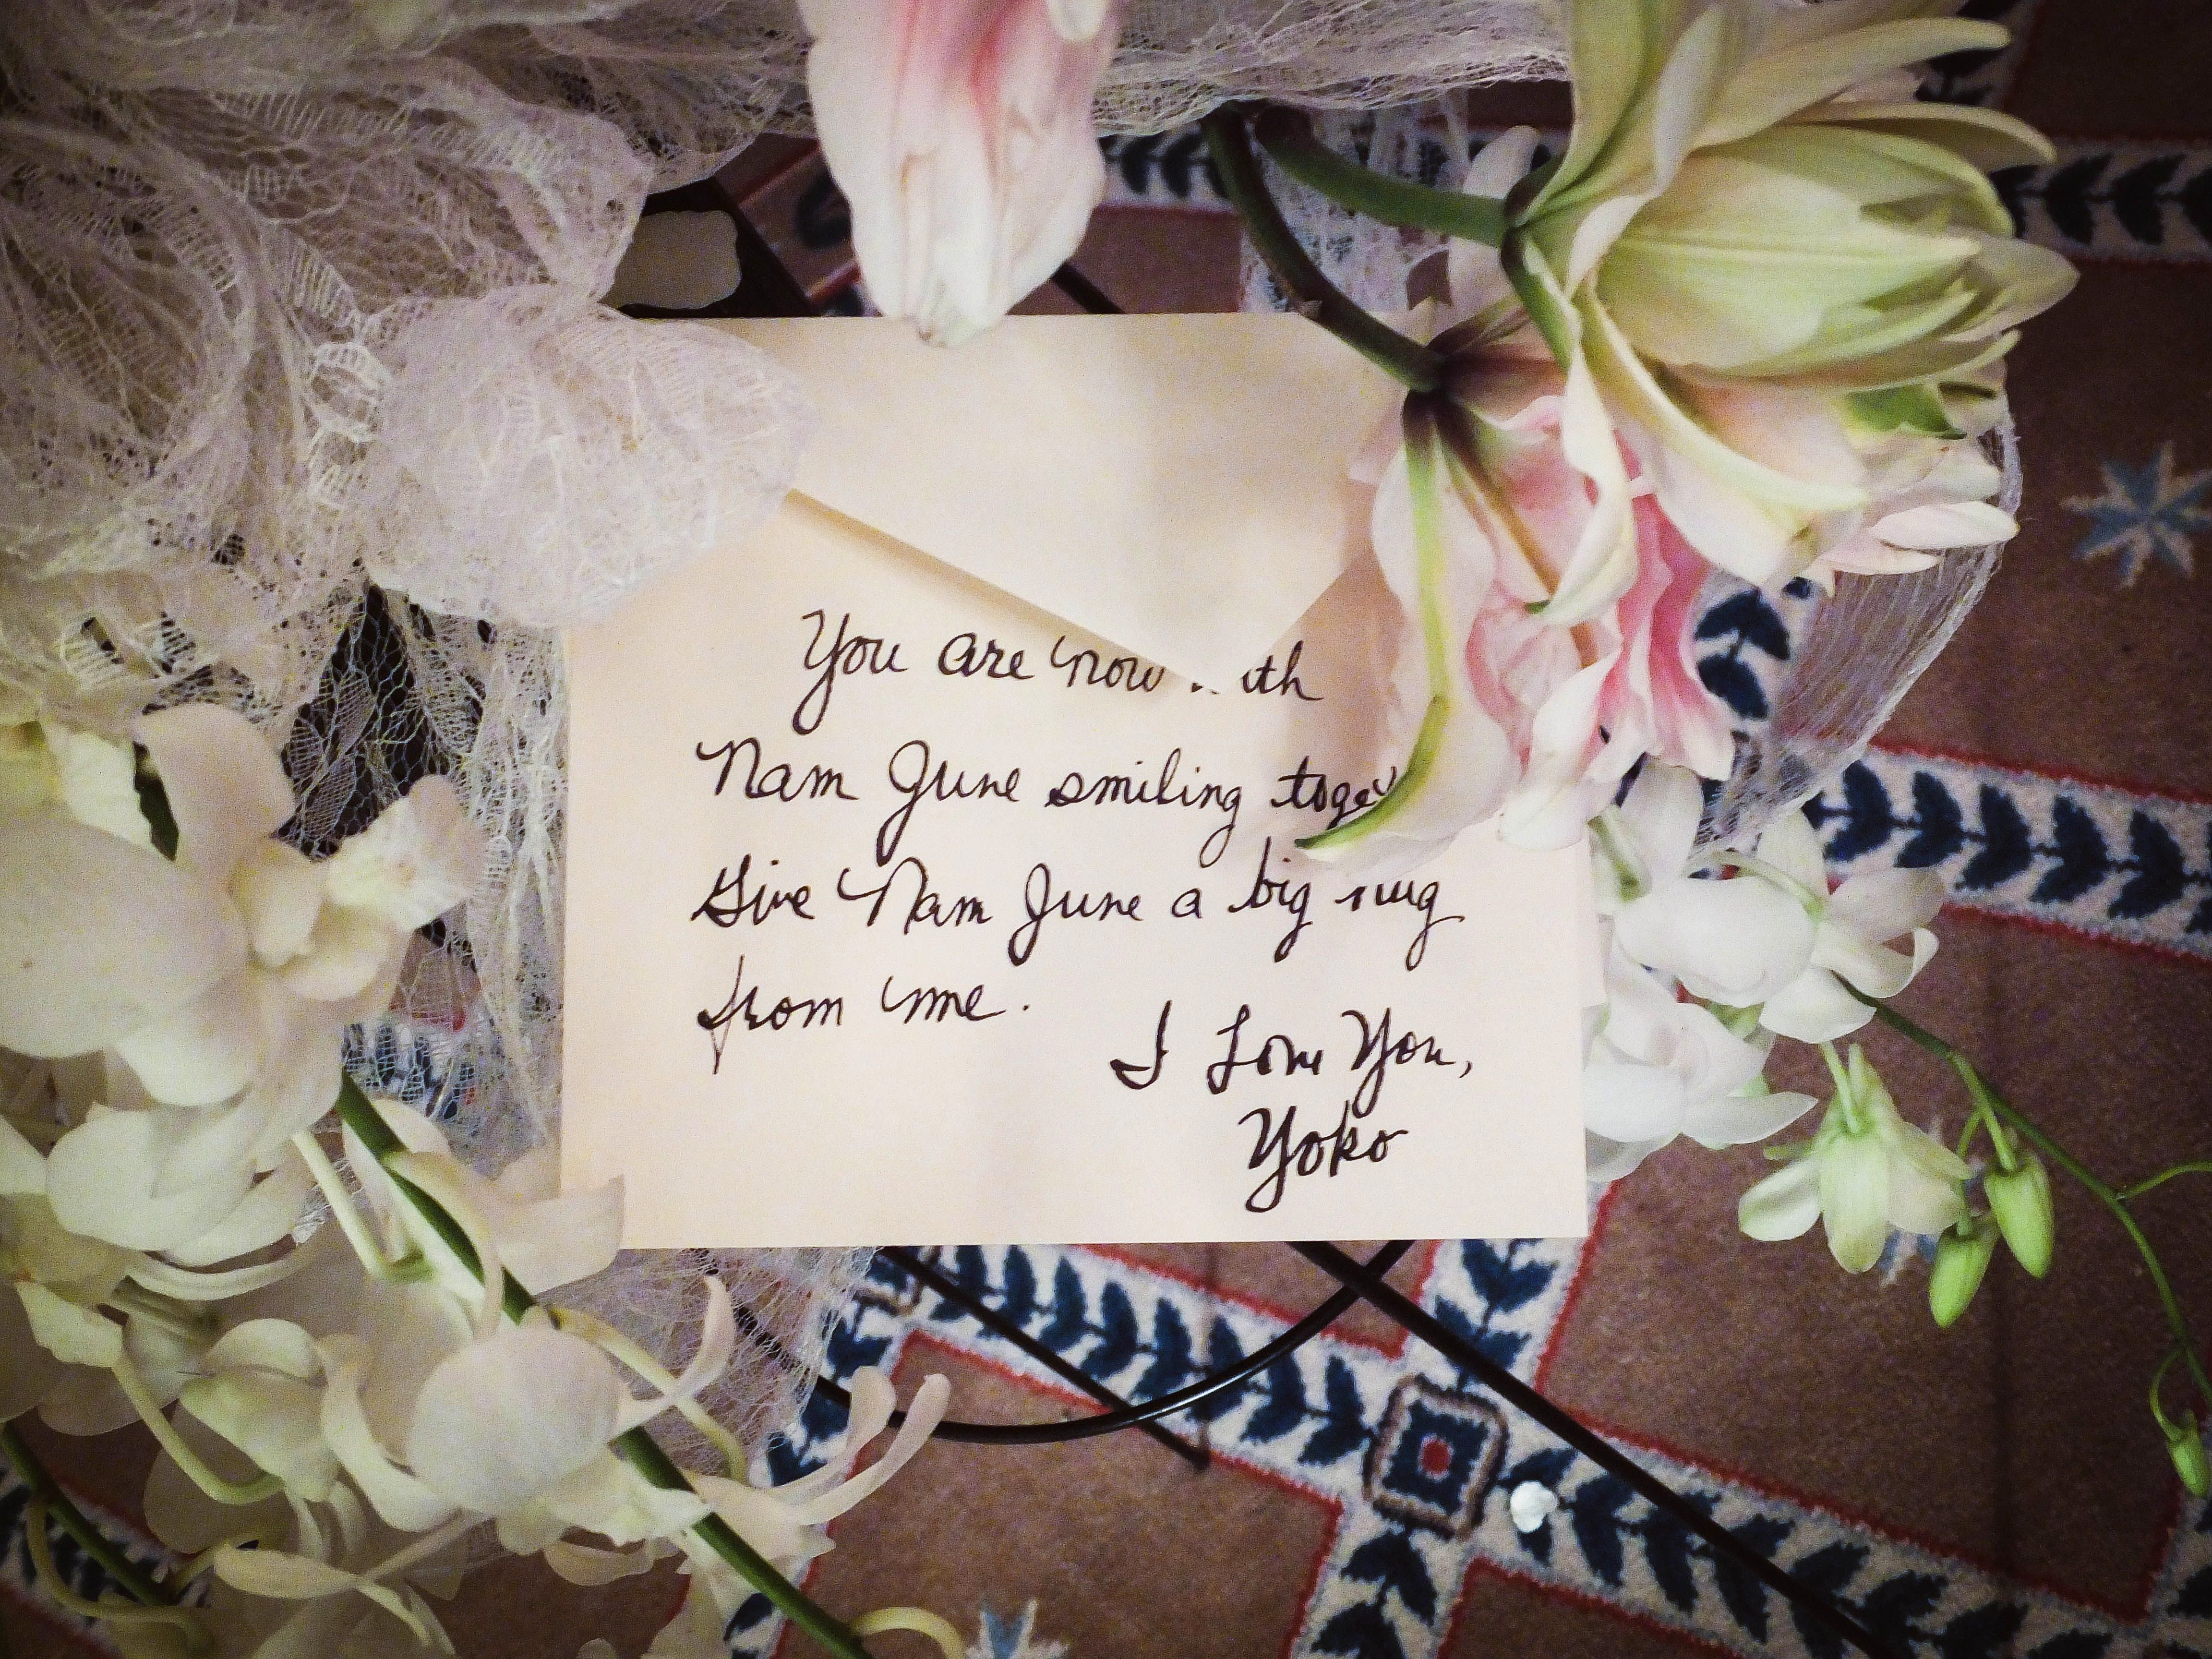 You are now with
Nam June smiling toge
Give Nam June a big hug
from me.
I Love You,
Yoko